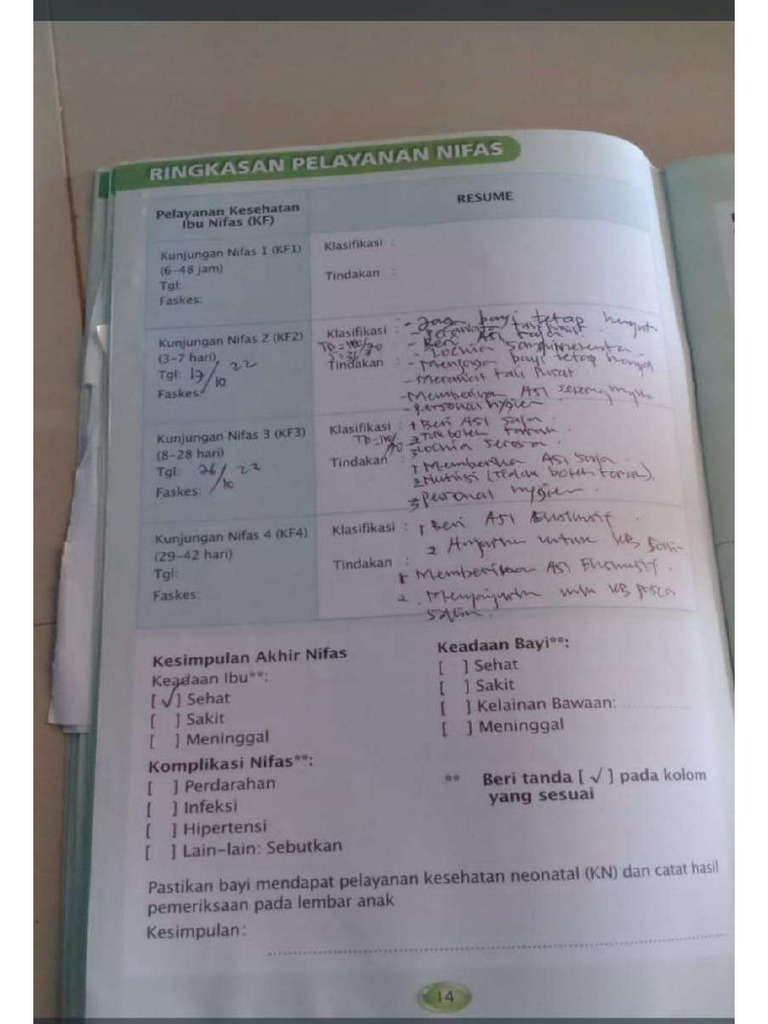 RINGKASAN PELAYANAN NIFAS
Pelayanan Kesehatan
Ibu Nifas (KF)
RESUME
Kunjungan Nifas 1 (KF1)
(6-48 jam)
Tgl:
Faskes:
Klasifikasi :
Tindakan :
Kunjungan Nifas 2 (KF2)
(3-7 hari)
Tgl: 17/10 22
Faskes:
Klasifikasi : - bayi tetap
TD = 70
- Beri ASI
- Lochia
Tindakan : - Menjaga bayi tetap
- Merawat tali pusat
- ASI
- personal hygien
Kunjungan Nifas 3 (KF3)
(8-28 hari)
Tgl: 26/10 22
Faskes:
Klasifikasi : 1 Beri ASI saja
TD = 2 boleh
3 Lochia serosa
Tindakan : 1 Memberikan ASI saja
2 Nutrisi (Tidak boleh
3 personal hygien
Kunjungan Nifas 4 (KF4)
(29-42 hari)
Tgl:
Faskes:
Klasifikasi : 1 Beri ASI
2 untuk KB
Tindakan :
1 Memberikan ASI
2. KB pasca
salin.
Kesimpulan Akhir Nifas
Keadaan Ibu**:
[√] Sehat
[ ] Sakit
[ ] Meninggal
Komplikasi Nifas**:
[ ] Perdarahan
[ ] Infeksi
[ ] Hipertensi
[ ] Lain-lain: Sebutkan
Keadaan Bayi**:
[ ] Sehat
[ ] Sakit
[ ] Kelainan Bawaan: ..................
[ ] Meninggal
** Beri tanda [ √ ] pada kolom
yang sesuai
Pastikan bayi mendapat pelayanan kesehatan neonatal (KN) dan catat hasil
pemeriksaan pada lembar anak
Kesimpulan:
14